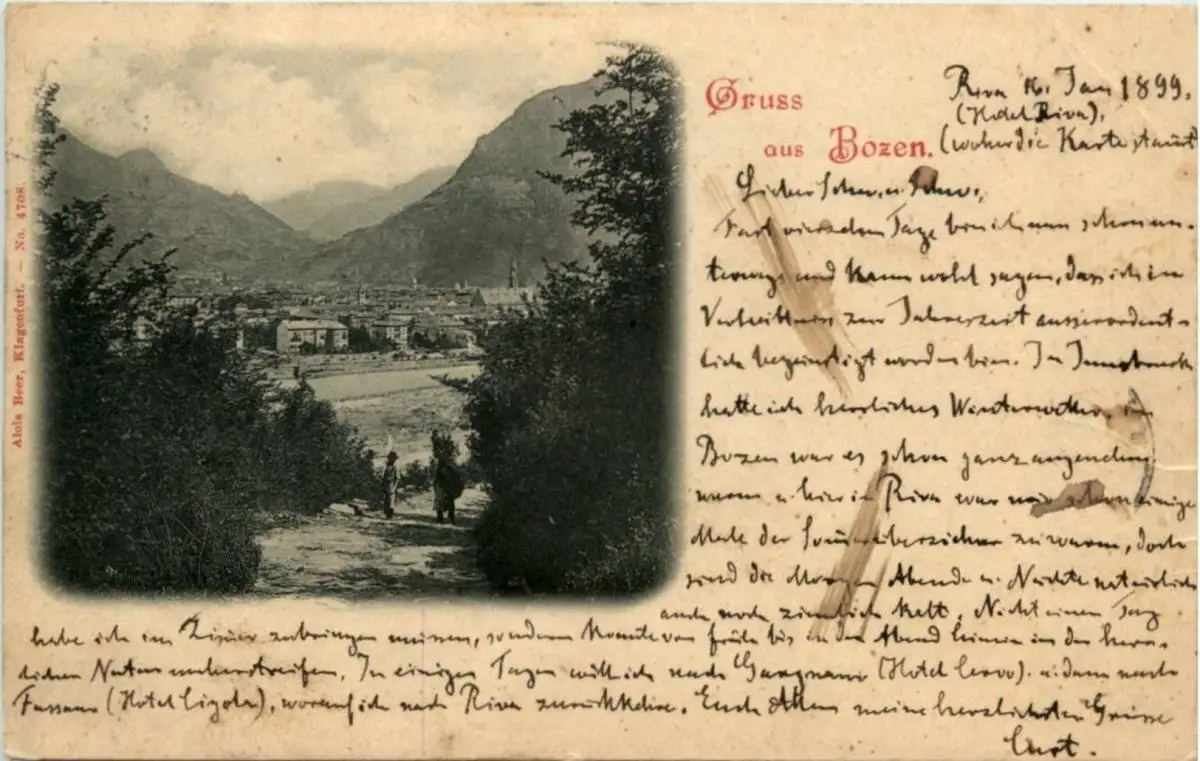 Gruss
aus Bozen.
Alois Beer, Klagenfurt. — No. 4708.
Riva 16. Jan 1899.
(Hotel Riva),
(woher die Karte stammt
Lieber
Fast vierzehn Tage bin ich nun schon un-
terwegs und kann wohl sagen, dass ich im
Verhältniss zur Jahreszeit ausserordent-
lich begünstigt worden bin. In Innsbruck
hatte ich herrliches Winterwetter, in
Bozen war es schon ganz angenehm
warm u. hier in Riva war mir schon einige
Male der Sommerüberzieher zu warm, doch
sind die Morgen Abende u. Nächte natürlich
auch noch ziemlich kalt. Nicht einen Tag
habe ich im Zimmer zubringen müssen, sondern konnte von früh bis in den Abend hinein in der herr-
lichen Natur umherstreifen. In einigen Tagen will ich nach Gargnano (Hotel Cervo) u. dann nach
Fasano (Hotel Gigola), worauf ich nach Riva zurückkehre. Euch Allen meine herzlichsten Grüsse
Curt.